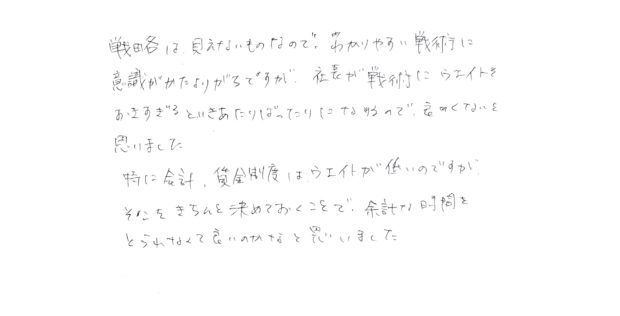 戦略は、見えないものなので、わかりやすい戦術に
意識がかたよりがちですが、社長が戦術にウエイトを
おきすぎるといきあたりばったりになるので、良くないと
思いました
特に会計、賃金制度はウエイトが低いのですが、
そこをきちんと決めておくことで、余計な時間を
とられなくて良いのかなと思いました